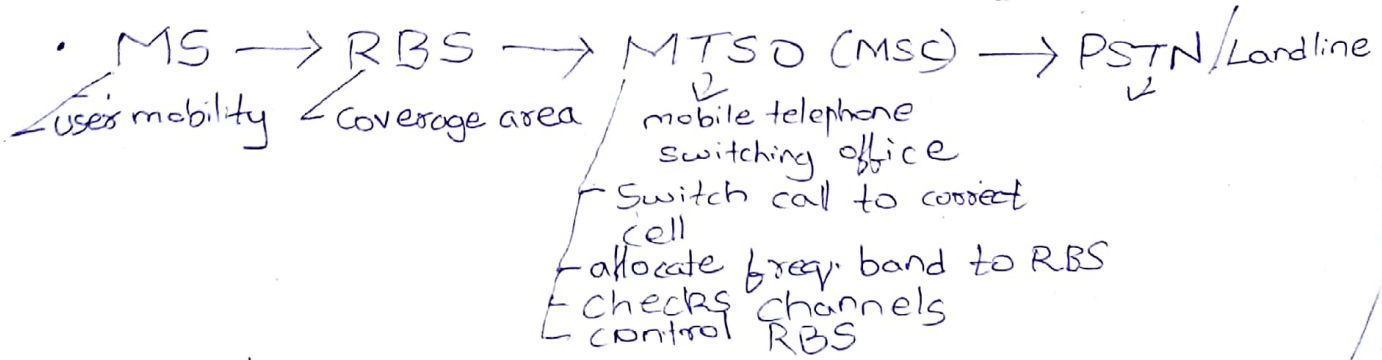 • MS → RBS → MTSO (MSC) → PSTN/Landline
user's mobility coverage area mobile telephone
switching office
- Switch call to correct
cell
- allocate freq. band to RBS
- checks channels
- control RBS